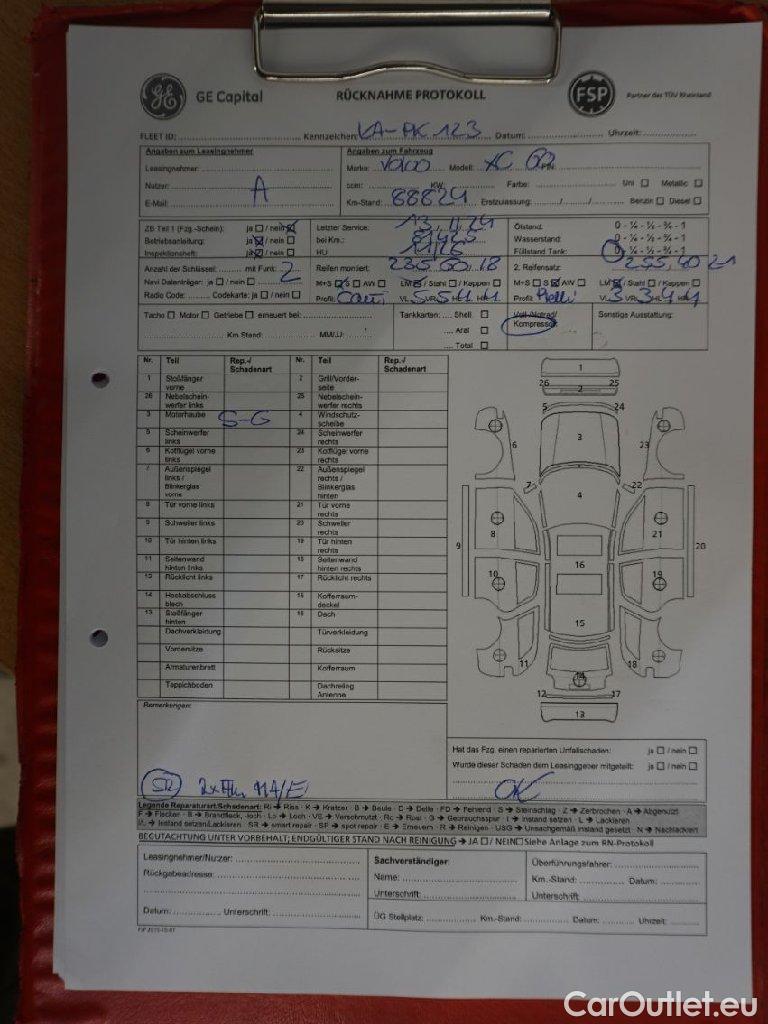 GE GE Capital RÜCKNAHME PROTOKOLL FSP Partner des TÜV Rheinland
FLEET ID: Kennzeichen: KA-PK 123 Datum: Uhrzeit:
Angaben zum Leasingnehmer Angaben zum Fahrzeug
Leasingnehmer: Marke: Volvo Modell: XC 60
Nutzer: A ccm: KW: Farbe: Uni ☐ Metallic ☐
E-Mail: Km-Stand: 88824 Erstzulassung: / / Benzin ☐ Diesel ☐
ZB Teil 1 (Fzg.-Schein): ja ☐ / nein ☒ Letzter Service: 13.11.24 Ölstand: 0 - ¼ - ½ - ¾ - 1
Betriebsanleitung: ja ☒ / nein ☐ bei Km.: Wasserstand: 0 - ¼ - ½ - ¾ - 1
Inspektionsheft: ja ☒ / nein ☐ HU 11/26 Füllstand Tank: 0 - ¼ - ½ - ¾ - 1
Anzahl der Schlüssel: mit Funk: 2 Reifen montiert: 235.60.18 2. Reifensatz: 255.40 21
Navi Datenträger: ja ☐ / nein ☐ M+S ☒ S ☐ AW ☐ LM ☒ / Stahl ☐ / Kappen ☐ M+S ☐ S ☒ AW ☐ LM ☒ / Stahl ☐ / Kappen ☐
Radio Code: Codekarte: ja ☐ / nein ☐ Profil: Conti VL 5 VR 5 HL 4 HR 4 Profil: Pirelli VL 3 VR 3 HL 4 HR 4
Tacho ☐ Motor ☐ Getriebe ☐ erneuert bei: Tankkarten: Shell ☐ Voll-/Notrad/ Sonstige Ausstattung:
Aral ☐ Kompressor
Km Stand: MM/JJ: Total ☐
Nr. Teil Rep.-/ Schadenart Nr. Teil Rep.-/ Schadenart
1 Stoßfänger vorne 2 Grill/Vorderseite
26 Nebelscheinwerfer links 25 Nebelscheinwerfer rechts
3 Motorhaube S-G 4 Windschutzscheibe
5 Scheinwerfer links 24 Scheinwerfer rechts
6 Kotflügel vorne links 23 Kotflügel vorne rechts
7 Außenspiegel links / Blinkerglas vorne 22 Außenspiegel rechts / Blinkerglas hinten
8 Tür vorne links 21 Tür vorne rechts
9 Schweller links 20 Schweller rechts
10 Tür hinten links 19 Tür hinten rechts
11 Seitenwand hinten links 18 Seitenwand hinten rechts
12 Rücklicht links 17 Rücklicht rechts
14 Heckabschlussblech 15 Kofferraumdeckel
13 Stoßfänger hinten 16 Dach
Dachverkleidung Türverkleidung
Vordersitze Rücksitze
Armaturenbrett Kofferraum
Teppichboden Dachreling Antenne
1
26 2 25
5 24
6 3 23
7 4 22
9 8 21 20
10 16 19
15
11 14 18
12 17
13
Bemerkungen:
Hat das Fzg. einen reparierten Unfallschaden: ja ☐ / nein ☐
Wurde dieser Schaden dem Leasinggeber mitgeteilt: ja ☐ / nein ☐
OK
Legende Reparaturart/Schadenart: Ri → Riss · K → Kratzer · B → Beule · D → Delle · FD → Fehlend · S → Steinschlag · Z → Zerbrochen · A → Abgenutzt
F → Flecken · B → Brandfleck, -loch · Lo → Loch · VS → Verschmutzt · Ro → Rost · G → Gebrauchsspur · I → Instand setzen · L → Lackieren
IL → Instand setzen/Lackieren · SR → smart repair · SP → spot repair · E → Erneuern · R → Reinigen · USG → Unsachgemäß instand gesetzt · N → Nachlackiert
BEGUTACHTUNG UNTER VORBEHALT; ENDGÜLTIGER STAND NACH REINIGUNG → JA ☐ / NEIN ☐ Siehe Anlage zum RN-Protokoll
Leasingnehmer/Nutzer: Sachverständiger: Überführungsfahrer:
Rückgabeadresse: Name: Km.-Stand: Datum:
Unterschrift: Unterschrift:
Datum: Unterschrift: ÜG Stellplatz: Km.-Stand: Datum: Uhrzeit:
CarOutlet.eu